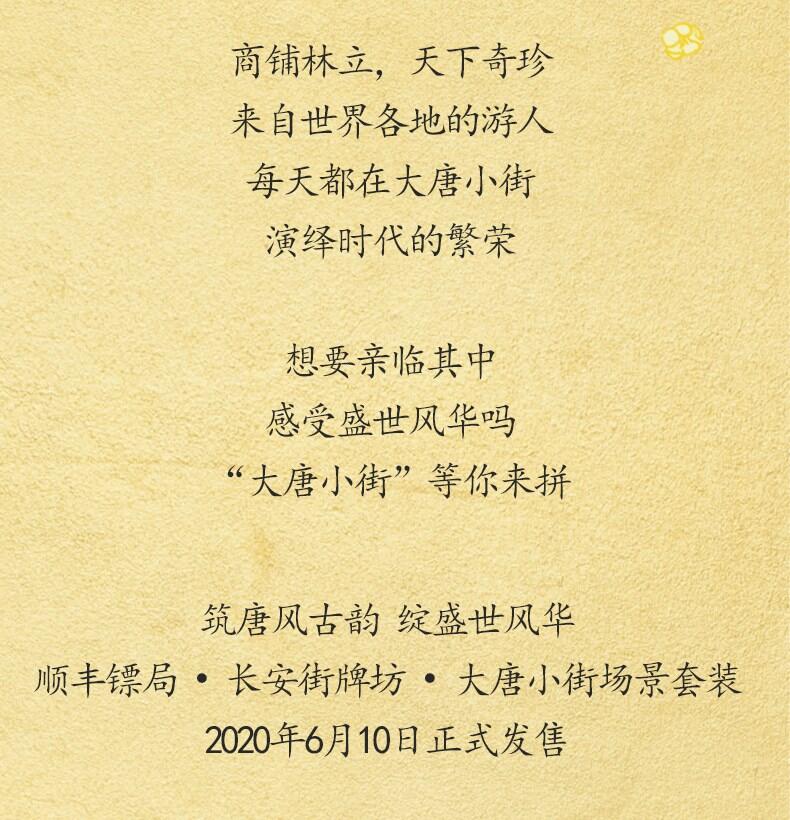 商铺林立，天下奇珍
来自世界各地的游人
每天都在大唐小街
演绎时代的繁荣
想要亲临其中
感受盛世风华吗
“大唐小街”等你来拼
筑唐风古韵 绽盛世风华
顺丰镖局 • 长安街牌坊 • 大唐小街场景套装
2020年6月10日正式发售